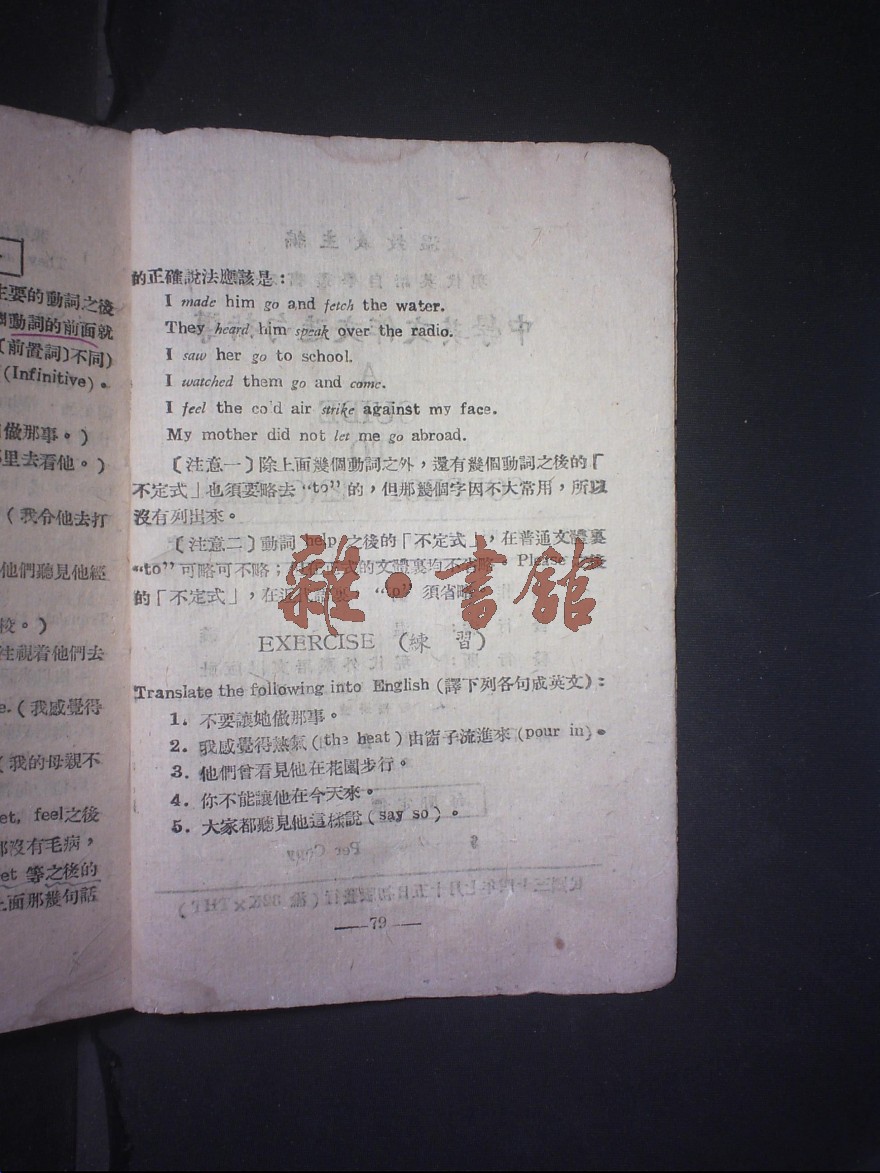 主要的動詞之後
動詞的前面就
(前置詞)不同)
(Infinitive)。
做那事。)
里去看他。)
(我令他去打
他們聽見他經
校。)
注視着他們去
e. (我感覺得
(我的母親不
et, feel之後
都沒有毛病，
et 等之後的
上面那幾句話
的正確說法應該是：
I made him go and fetch the water.
They heard him speak over the radio.
I saw her go to school.
I watched them go and come.
I feel the cold air strike against my face.
My mother did not let me go abroad.
〔注意一〕除上面幾個動詞之外，還有幾個動詞之後的「
不定式」也須要略去 "to" 的，但那幾個字因不大常用，所以
沒有列出來。
〔注意二〕動詞 help 之後的「不定式」，在普通文體裏
"to" 可略可不略；文體裏均不省略。Please 之後
的「不定式」，在近代 "to" 須省略
雜·書館
EXERCISE (練 習)
Translate the following into English (譯下列各句成英文)：
1. 不要讓她做那事。
2. 我感覺得熱氣 (the heat) 由窗子流進來 (pour in)。
3. 他們曾看見他在花園步行。
4. 你不能讓他在今天來。
5. 大家都聽見他這樣說 (say so)。
—79—